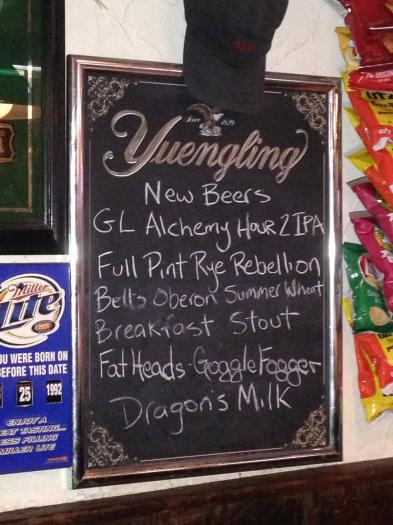 Yuengling
New Beers
GL Alchemy Hour 2 IPA
Full Pint Rye Rebellion
Bell's Oberon Summer Wheat
Breakfast Stout
Fat Heads-Goggle Fogger
Dragon's Milk
Miller
Lite
OU WERE BORN ON
BEFORE THIS DATE
25 1992
ENJOY A
EAT TASTING...
ESS FILLING
MILLER LITE
UTZ